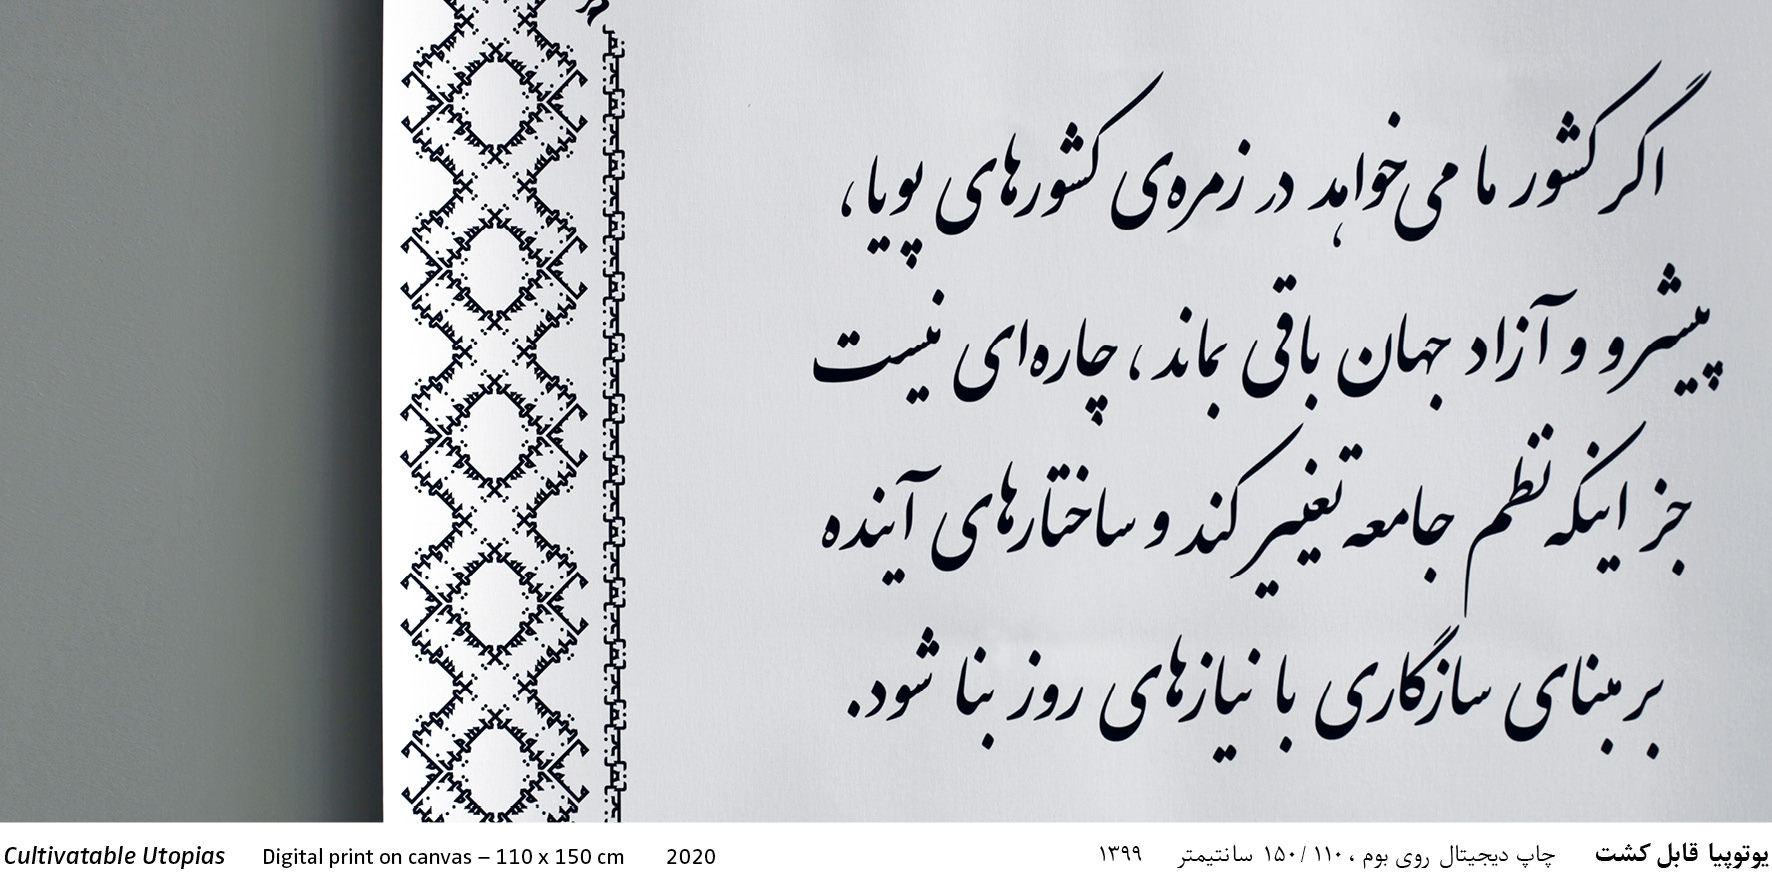 اگر کشور ما می‌خواهد در زمره‌ی کشورهای پویا،
پیشرو و آزاد جهان باقی بماند، چاره‌ای نیست
جز اینکه نظم جامعه تغییر کند و ساختارهای آینده
بر مبنای سازگاری با نیازهای روز بنا شود.
یوتوپیا قابل کشت چاپ دیجیتال روی بوم، ۱۱۰ / ۱۵۰ سانتیمتر ۱۳۹۹
Cultivatable Utopias Digital print on canvas – 110 x 150 cm 2020